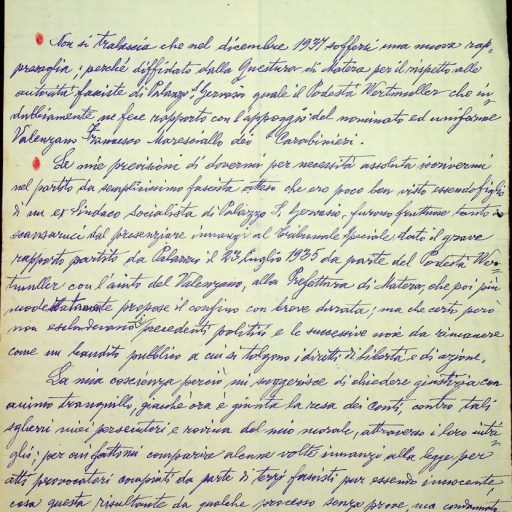 Non si tralascia che nel dicembre 1937 soffersi una nuova rap-
presaglia; perché diffidato dalla Questura di Matera per il rispetto alle
autorità fasciste di Palazzo S. Gervasio quale il Podestà Wertmuller che in-
dubbiamente ne fece rapporto con l'appoggio del nominato ed uniforme
Valenzano Francesco Maresciallo dei Carabinieri.
Le mie previsioni di dovermi per necessità assoluta iscrivermi
nel partito da semplicissimo fascista atteso che ero poco ben visto essendo figlio
di un ex Sindaco Socialista di Palazzo S. Gervasio, furono fruttuose tanto
scansaruci dal presenziare innanzi al Tribunale Speciale dato il grave
rapporto partito da Palazzo il 23 luglio 1935 da parte del Podestà Wer-
tmuller con l'aiuto del Valenzano, alla Prefettura di Matera, che poi più
modestamente propose il confino con breve durata; ma che certo però
non escluderano i precedenti politici e le successive noie da rimanere
come un bandito pubblico a cui si tolgono i diritti di libertà e di azione.
La mia coscienza perciò mi suggerisce di chiedere giustizia con
animo tranquillo, giacché ora è giunta la resa dei conti, contro tali
sgherri miei persecutori e rovina del mio morale, attraverso i loro intri-
ghi; per cui fattomi comparire alcune volte innanzi alla legge per
atti provocatori compiuti da parte di terzi fascisti pur essendo innocente,
cosa questa risultante da qualche processo senza prove, ma condannato